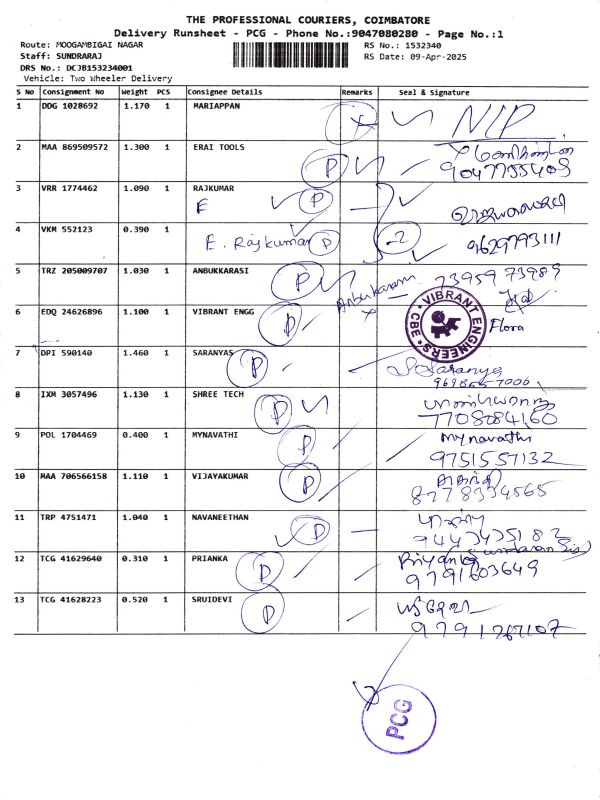 THE PROFESSIONAL COURIERS, COIMBATORE
Delivery Runsheet - PCG - Phone No.:9047080280 - Page No.:1
Route: MOOGAMBIGAI NAGAR
RS No.: 1532340
Staff: SUNDRARAJ
RS Date: 09-Apr-2025
DRS No.: DCJB153234001
Vehicle: Two Wheeler Delivery
S No Consignment No Weight PCS Consignee Details Remarks Seal & Signature
1 DDG 1028692 1.170 1 MARIAPPAN X NIP
2 MAA 869509572 1.300 1 ERAI TOOLS P
3 VRR 1774462 1.090 1 RAJKUMAR P
E
4 VKM 552123 0.390 1 E. Rajkumar P -2 9629793111
5 TRZ 205009707 1.030 1 ANBUKKARASI P Anbukarasi 73959 73989
6 EDQ 24626896 1.100 1 VIBRANT ENGG P VIBRANT ENGINEERS CBE Flora
7 DPI 590140 1.460 1 SARANYAS P S.Saranya
8 IXM 3057496 1.130 1 SHREE TECH P
7708284160
9 POL 1704469 0.400 1 MYNAVATHI P Mynavathi
9751557132
10 MAA 706566158 1.110 1 VIJAYAKUMAR P
8278334565
11 TRP 4751471 1.040 1 NAVANEETHAN P
9443435182
12 TCG 41629640 0.310 1 PRIANKA P Priyanka
9791603649
13 TCG 41628223 0.520 1 SRUIDEVI P
9791267107
PCG